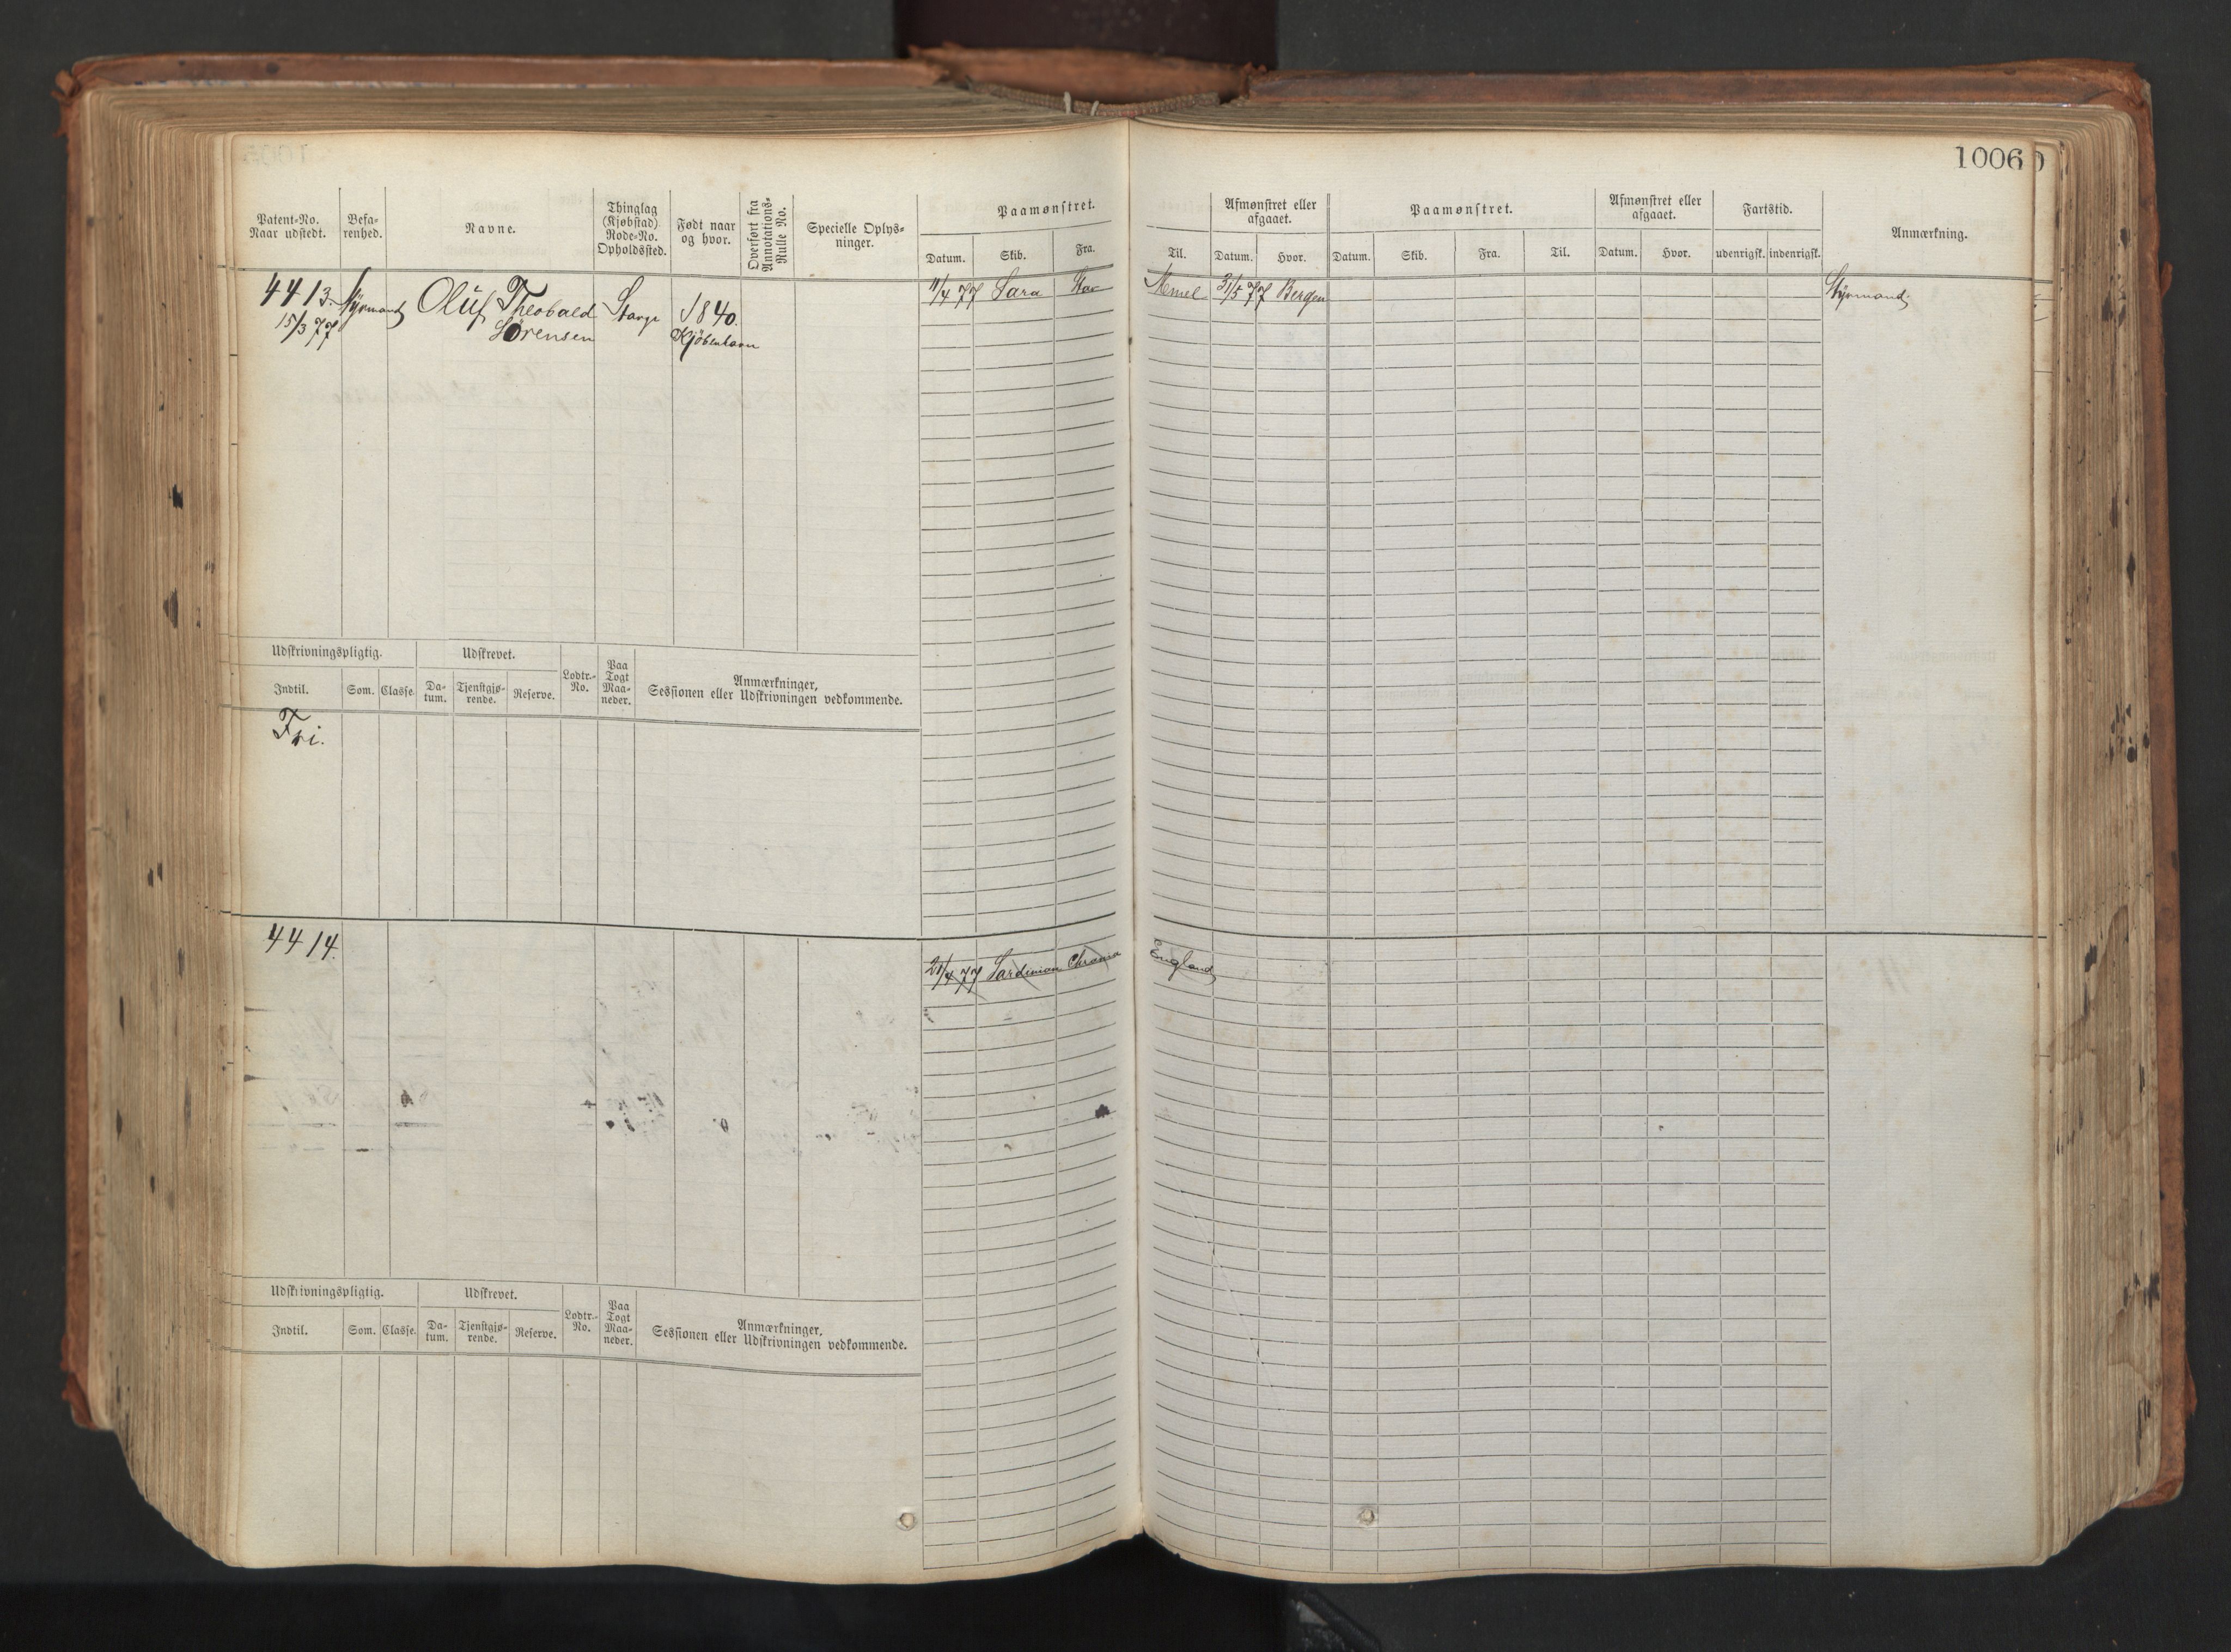 1006
Patent-No. Naar udstedt.
Befa-renhed.
Navne.
Thinglag (Kjøbstad) Rode-No. Opholdssted.
Født naar og hvor.
Overført fra Annotations-Rulle No.
Specielle Oplys-ninger.
Paamønstret.
Datum. Skib. Fra. Til.
Afmønstret eller afgaaet.
Datum. Hvor.
Paamønstret.
Datum. Skib. Fra. Til.
Afmønstret eller afgaaet.
Datum. Hvor.
Fartstid.
udenrigsk. indenrigsk.
Anmærkning.
4413. Styrmand Oluf Theobald Stavgr 1840. 11/4 77 Sara Stav Memel 31/5 77 Bergen Styrmand.
15/3 77 Sørensen Kjöbenhavn
Udskrivningspligtig. Udskrevet. Lodtr.-No. Paa Togt Maa-neder. Anmærkninger, Sessionen eller Udskrivningen vedkommende.
Indtil. Som. Classe. Da-tum. Tjenstgjø-rende. Reserve.
Fri.
4414.
21/4 77 Sardinian England
Udskrivningspligtig. Udskrevet. Lodtr.-No. Paa Togt Maa-neder. Anmærkninger, Sessionen eller Udskrivningen vedkommende.
Indtil. Som. Classe. Da-tum. Tjenstgjø-rende. Reserve.